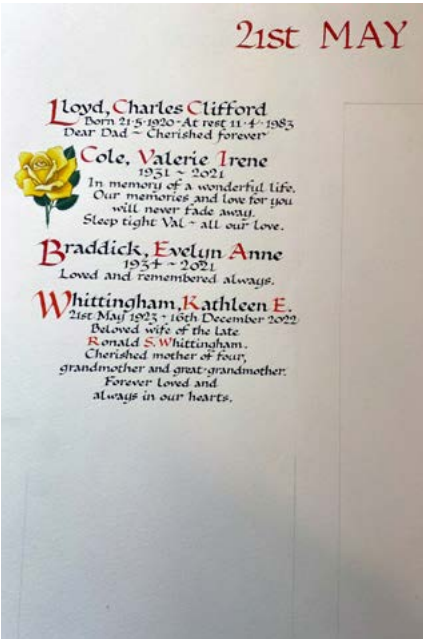 21st MAY
Lloyd, Charles Clifford
Born 21·5·1920 - At rest 11·4·1983
Dear Dad ~ Cherished forever
Cole, Valerie Irene
1931 ~ 2021
In memory of a wonderful life.
Our memories and love for you
will never fade away.
Sleep tight Val ~ all our love.
Braddick, Evelyn Anne
1934 ~ 2021
Loved and remembered always.
Whittingham, Kathleen E.
21st May 1923 - 16th December 2022
Beloved wife of the late
Ronald S. Whittingham.
Cherished mother of four,
grandmother and great-grandmother.
Forever loved and
always in our hearts.